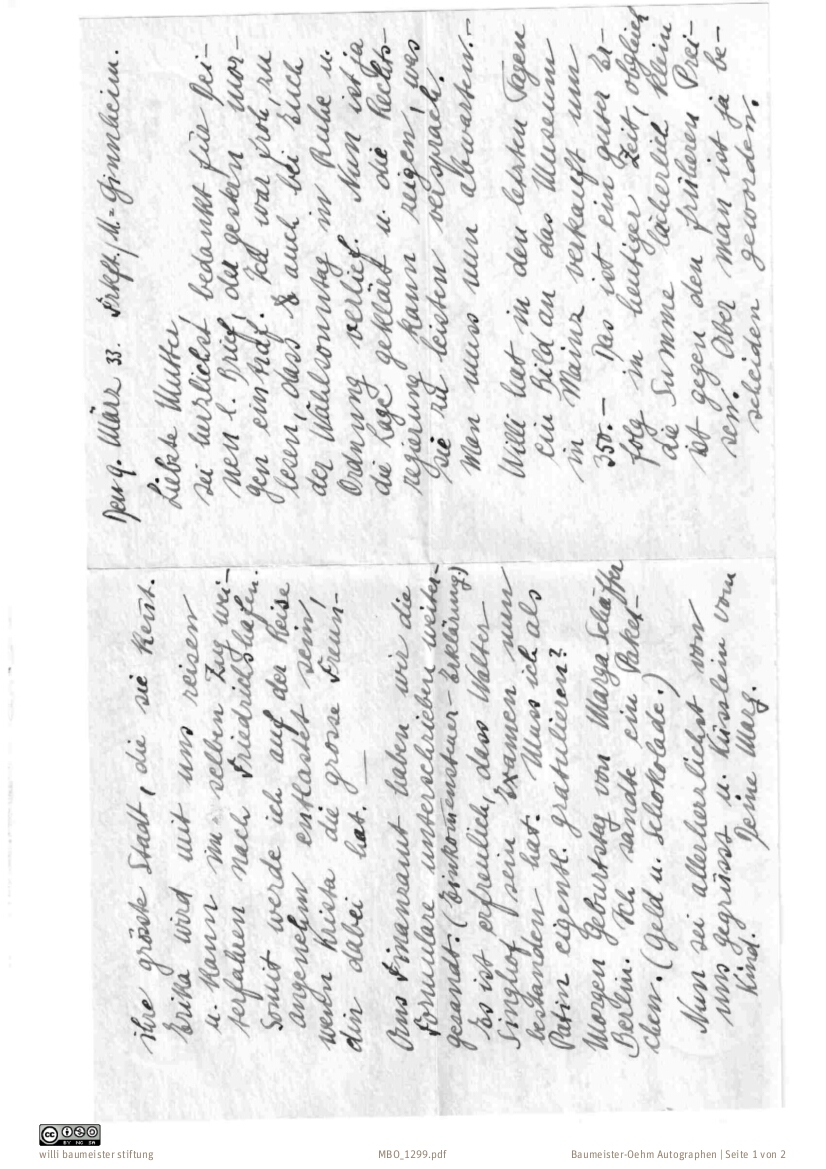 Den 9. März 33. Frkft./M.=Ginnheim.
Liebste Mutter,
sei herzlichst bedankt für Dei-
nen l. Brief, der gestern mor-
gen eintraf. Ich war froh, zu
lesen, dass auch bei Euch
der Wahlsonntag in Ruhe u.
Ordnung verlief. Nun ist ja
die Lage geklärt u. die Rechts-
regierung kann zeigen, was
sie zu leisten versprach.
Man muss nun abwarten.-
Willi hat in den letzten Tagen
ein Bild an das Museum
in Mainz verkauft um
350.- Das ist ein guter Er-
folg in heutiger Zeit, obgleich
die Summe lächerlich klein
ist gegen den früheren Prei-
sen. Aber man ist ja be-
scheiden geworden.
ihre grösste Stadt, die sie kennt.
Erika wird mit uns reisen
u. kann im selben Zug wei-
terfahren nach Friedrichshafen.
Somit werde ich auf der Reise
angenehm entlastet sein,
wenn Krista die grosse Freun-
din dabei hat. —
Ans Finanzamt haben wir die
Formulare unterschrieben weiter-
gesandt. (Einkomensteuer-Erklärung)
Es ist erfreulich, dass Walter
Singhof sein Examen nun
bestanden hat. Muss ich als
Patin eigentl. gratulieren?
Morgen Geburtstag von Marga Schäffer
Berlin. Ich sandte ein Paket-
chen. (Geld u. Schokolade.)
Nun sei allerherzlichst von
uns gegrüsst u. Küsslein vom
Kind. Deine Marg.
willi baumeister stiftung
MBO_1299.pdf
Baumeister-Oehm Autographen | Seite 1 von 2